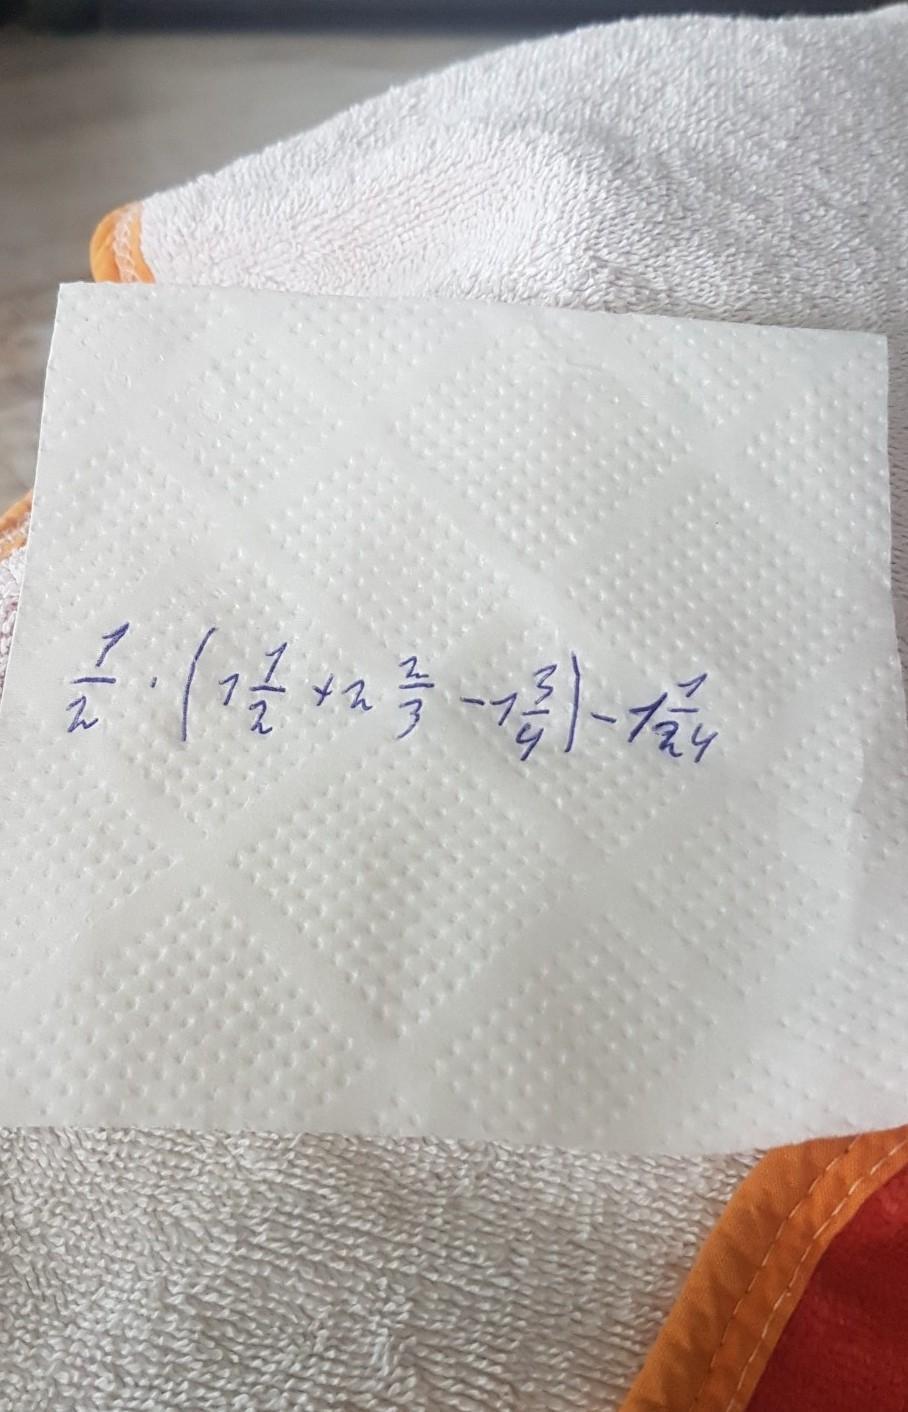 1/2 · (1 1/2 + 2 2/3 - 1 3/4) - 1 1/24